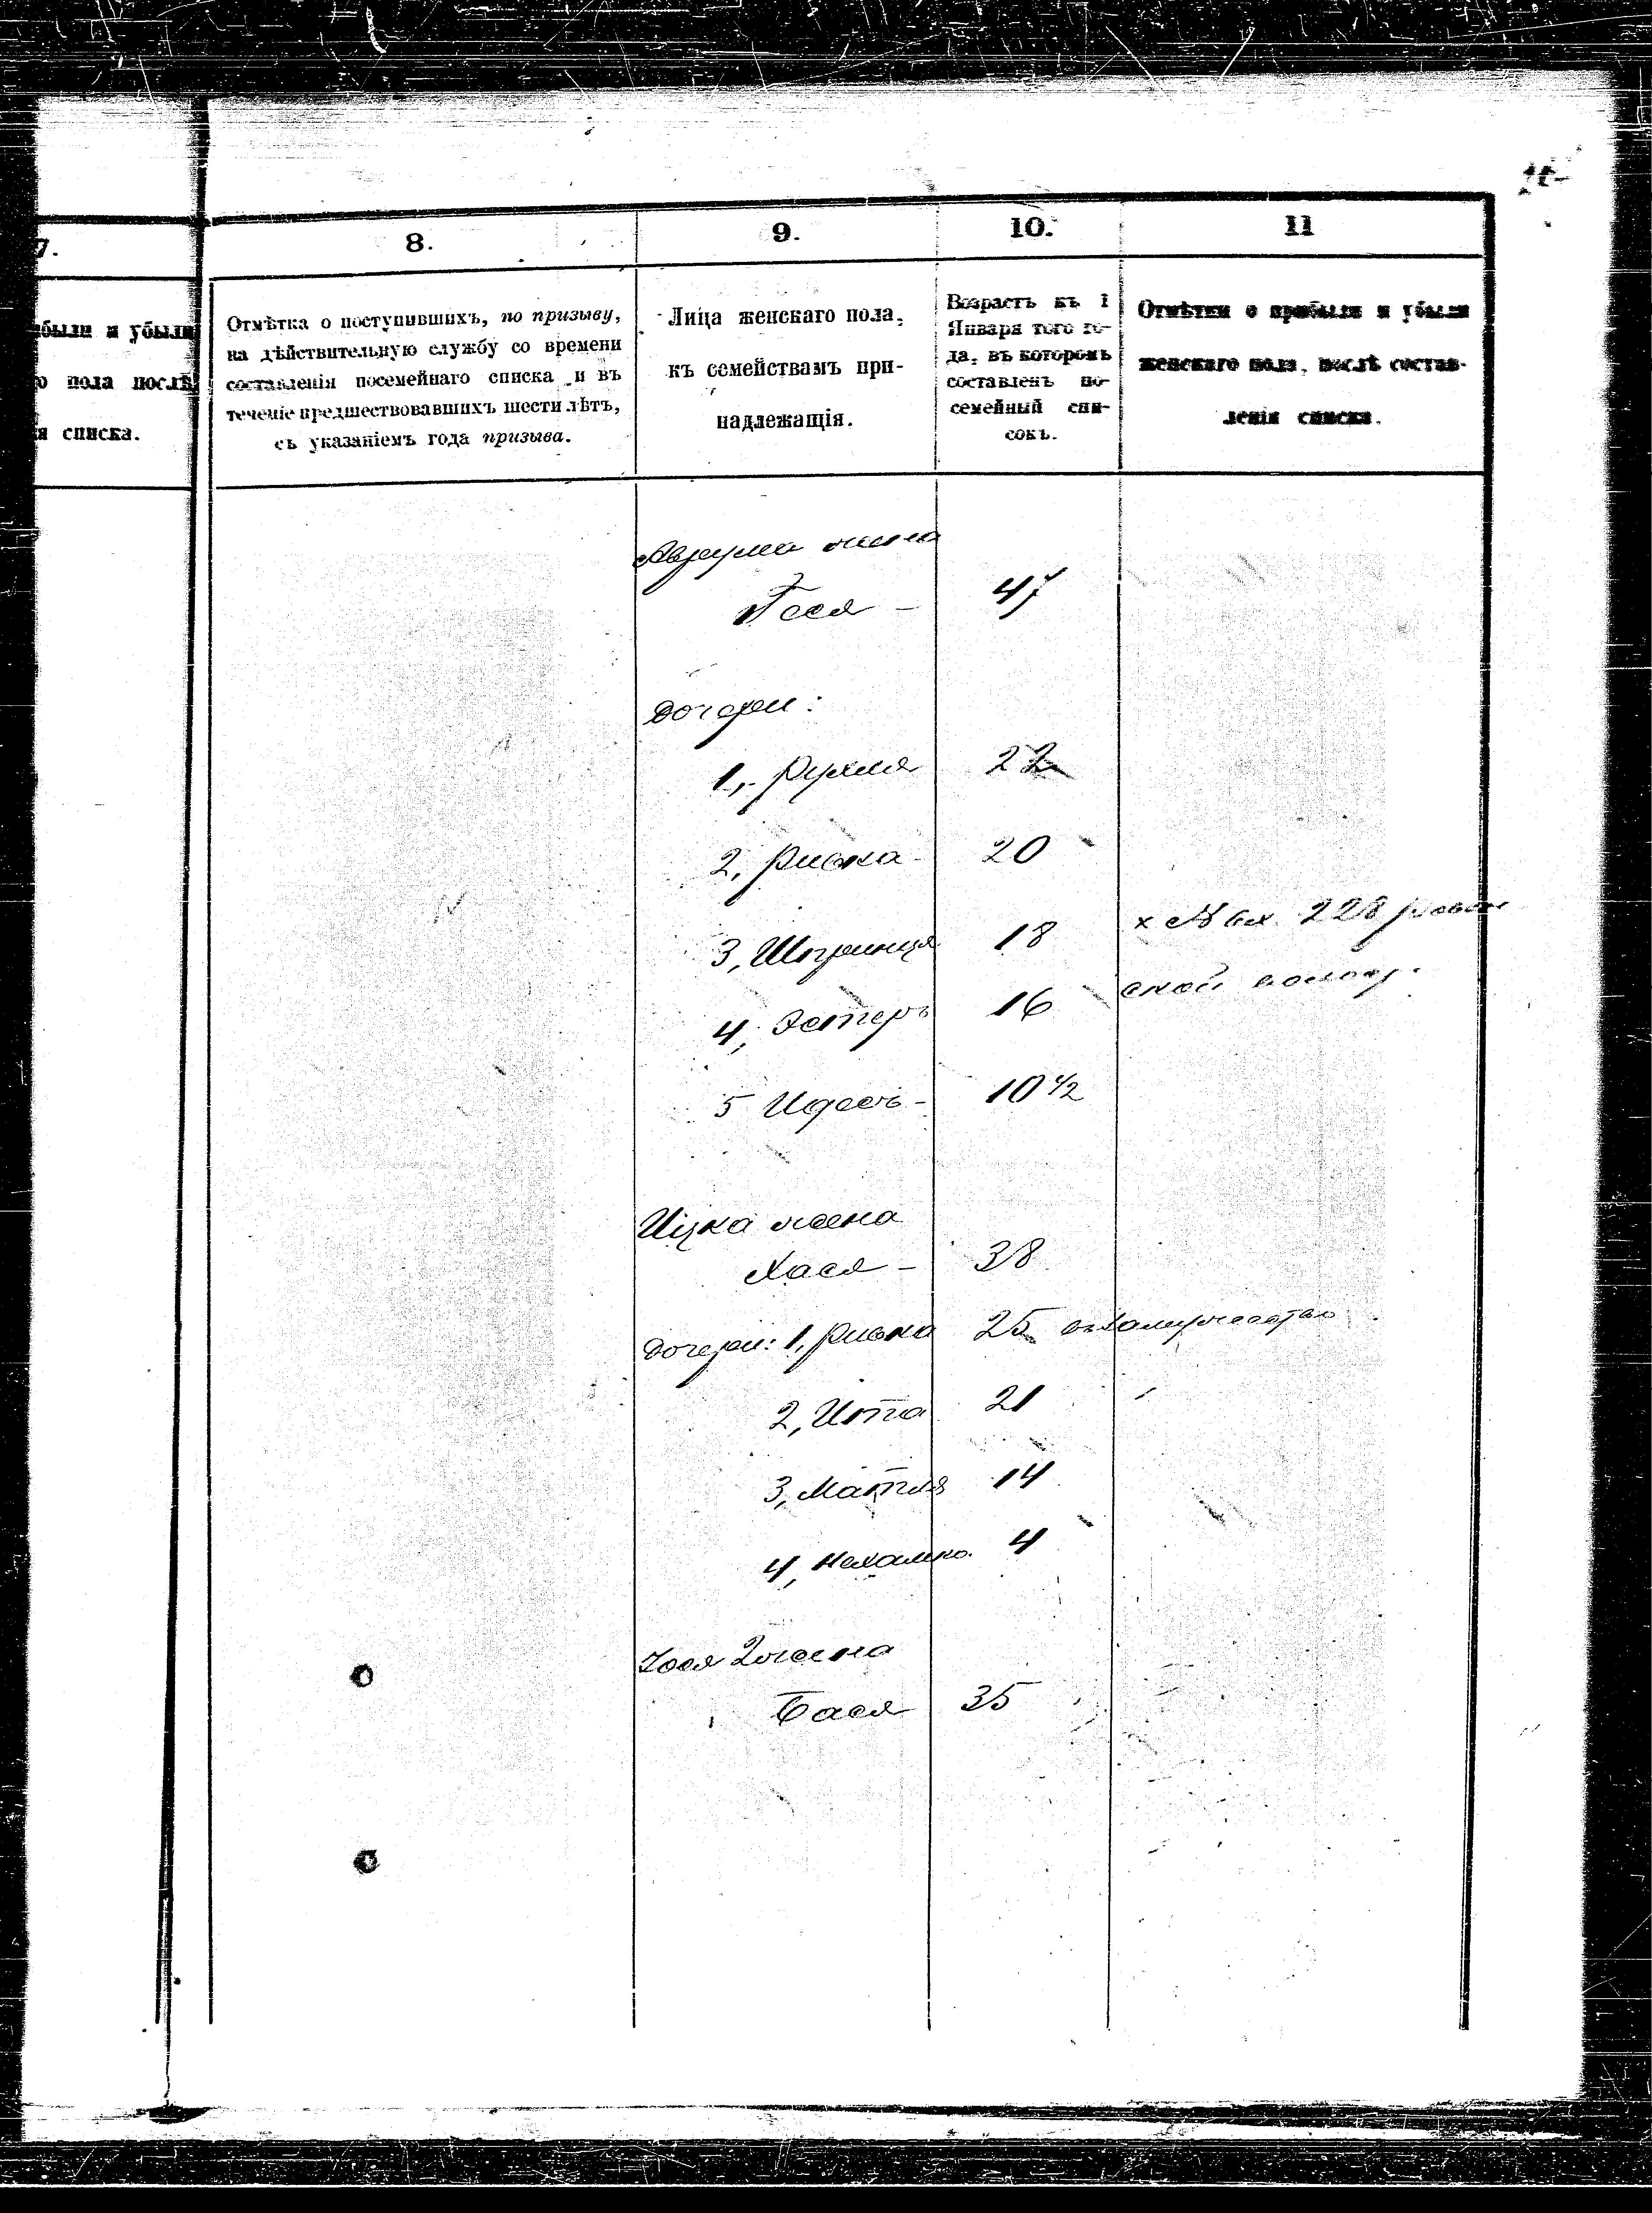 7.
8.
9.
10.
11
были и убыли
о пола послѣ
я списка.
Отмѣтка о поступившихъ, по призыву,
на дѣйствительную службу со времени
составленія посемейнаго списка и въ
теченіе предшествовавшихъ шести лѣтъ,
съ указаніемъ года призыва.
Лица женскаго пола,
къ семействамъ при-
надлежащія.
Возрастъ къ 1
Января того го-
да, въ которомъ
составленъ по-
семейный спи-
сокъ.
Отмѣтки о прибыли и убыли
женскаго пола, послѣ состав-
ленія списка.
Аврума жена
Песя - 47
Дочери:
1, Рухля 22
2, Ривка 20
3, Шпринця 18 х № вх. 228
4, Эстеръ 16 ской
5 Идесъ - 10 1/2
Ицка жена
Хася - 38
Дочери: 1, Ривка 25 въ замужество
2, Ита 21
3, Матля 14
4, Нехамка. 4
Іося 2 жена
Бася 35